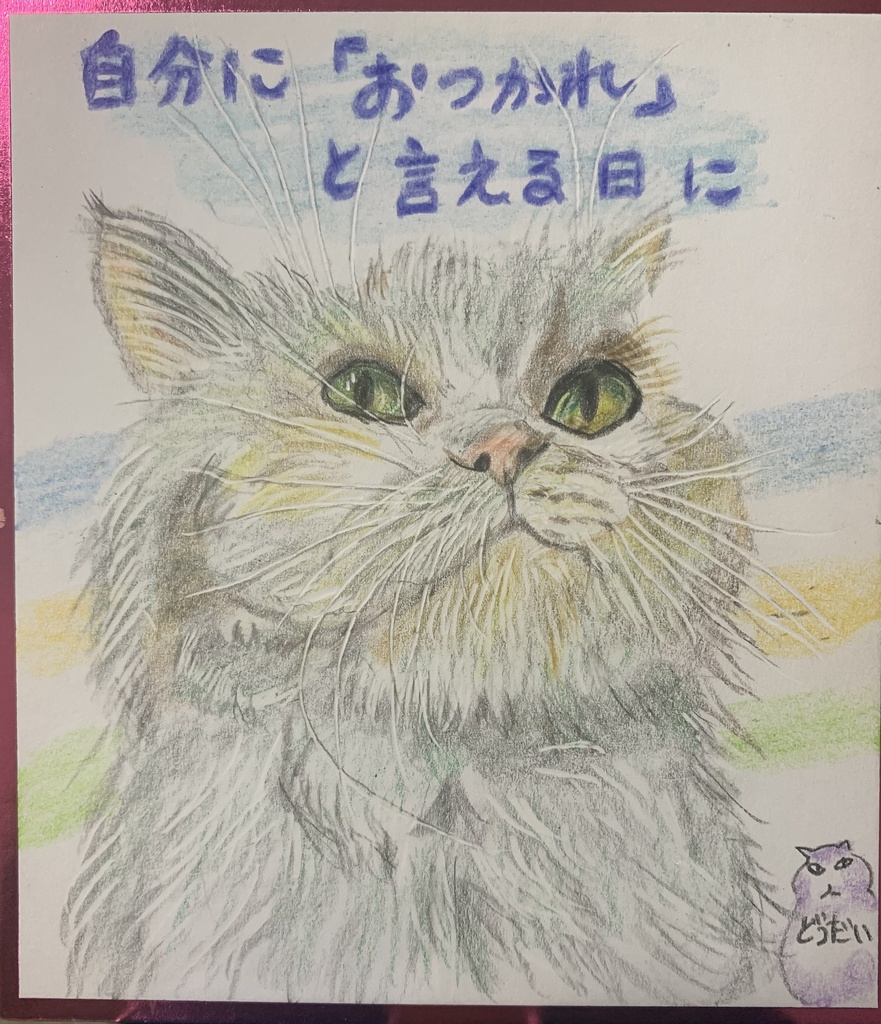 自分に「おつかれ」
と言える日に
どうだい